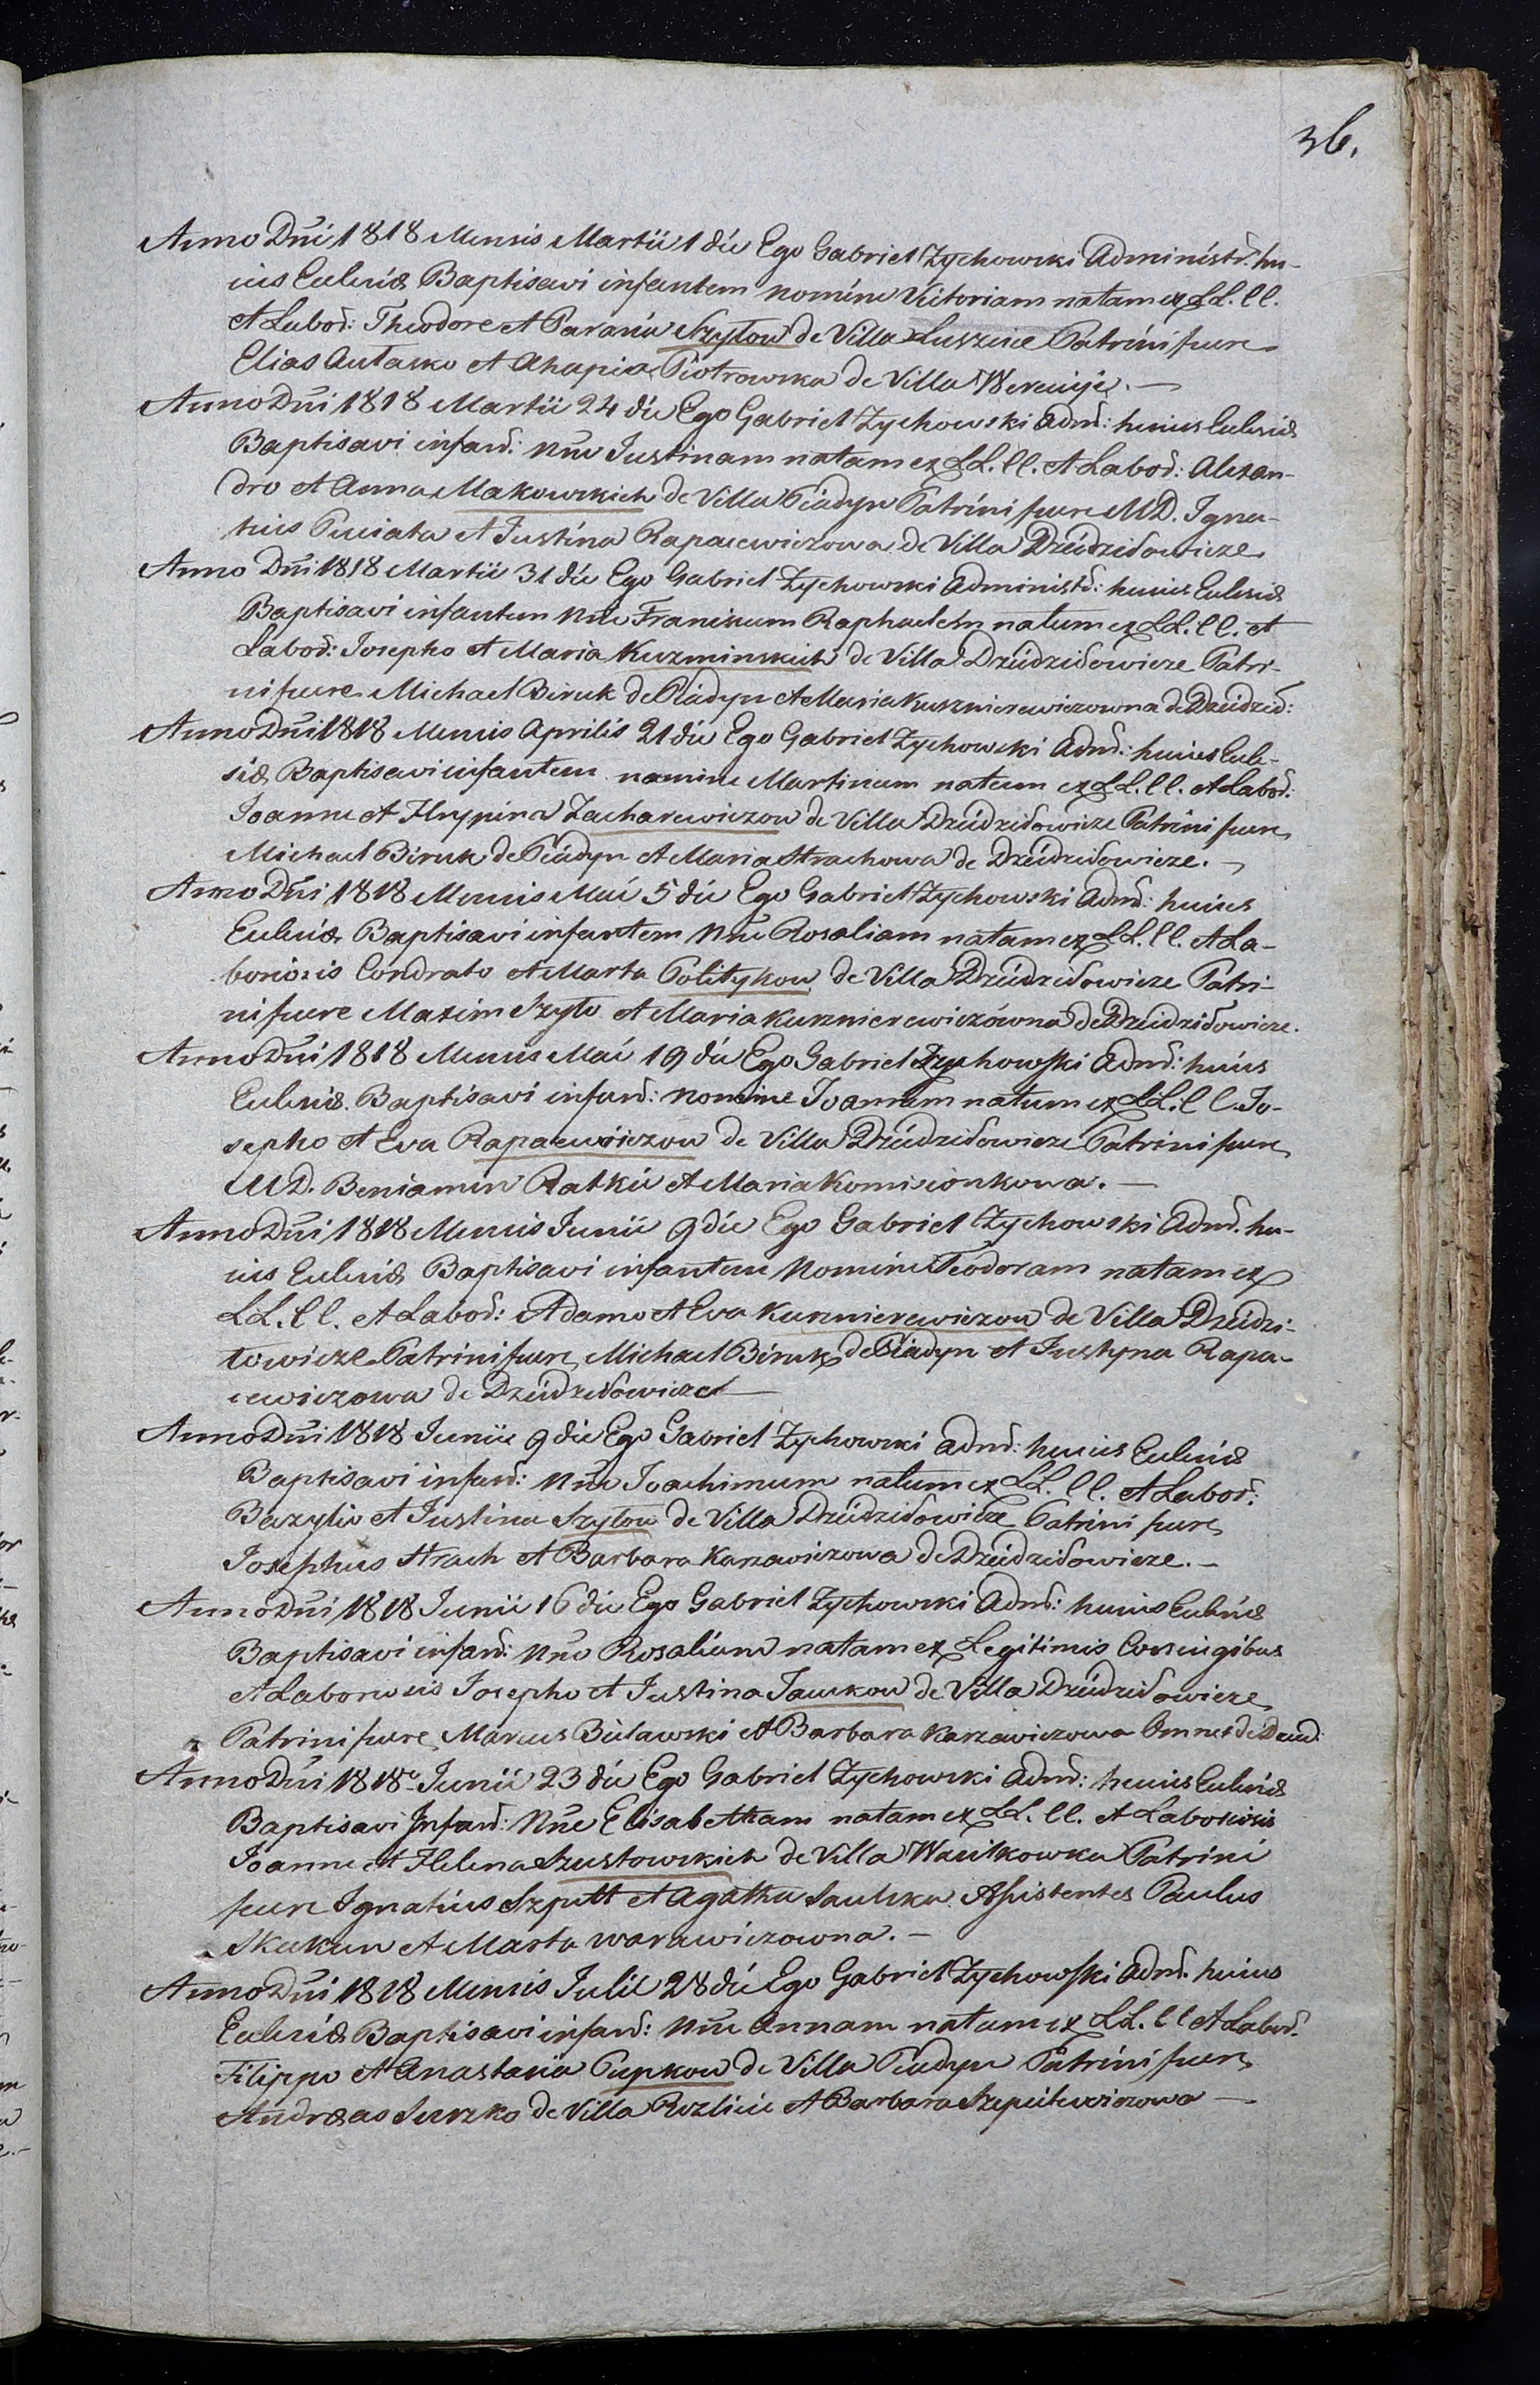 36.
Anno Dñi 1818 Mensis Martii 1 die Ego Gabriel Zychowski Administr: hu-
ius Eclesiæ Baptisavi infantem nomine Victoriam natam ex LL. CC.
et Labor: Theodore et Parania Szytow de Villa Luszcice Patrini fuere
Elias Autasko et Ahapia Piotrowska de Villa Wereicye. —
Anno Dñi 1818 Martii 24 die Ego Gabriel Zychowski Admd: huius Eclesiæ
Baptisavi infand: Nñe Iustinam natam ex LL. CC. et Labod: Alexan-
dro et Anna Makowskich de Villa Piadyn Patrini fuere MD. Igna-
tius Puciata et Justina Rapacewiczowa de Villa Dziedzidowicze
Anno Dñi 1818 Martii 31 die Ego Gabriel Zychowski Administd: huius Eclesiæ
Baptisavi infantem Nñe Franiskum Raphaelem natum ex LL. CC. et
Labod: Iosepho et Maria Kuzminskich de Villa Dziedzidowicze Patri-
ni fuere Michael Biruk de Piadyn et Maria Kuznierewiczowna de Dziedzid:
Anno Dñi 1818 Mensis Aprilis 21 die Ego Gabriel Zychowski Admd: huius Ecle-
siæ Baptisavi infantem nomine Martinum natum ex LL. CC. et Labod:
Joanne et Hrypina Zacharewiczow de Villa Dziedzidowicze Patrini fuere
Michael Biruk de Piadyn et Maria Strachowa de Dziedzidowicze. —
Anno Dñi 1818 Mensis Maii 5 die Ego Gabriel Zychowski Admd: huius
Eclesiæ Baptisavi infantem Nñe Rosaliam natam ex LL. CC. et La-
boriosis Condrato et Marta Politykow de Villa Dziedzidowicze Patri-
ni fuere Maxim Szyto et Maria Kuznierewiczówna de Dziedzidowicze.
Anno Dñi 1818 Mensis Maii 19 die Ego Gabriel Zychowski Admd: huius
Eclesiæ Baptisavi infand: nomine Joannem natum ex LL. CC. Jo-
sepho et Eva Rapacewiczow de Villa Dziedzidowicze Patrini fuere
MD. Beniamin Ratkie et Maria Komisionkowa. —
Anno Dñi 1818 Mensis Junii 9 die Ego Gabriel Zychowski Admd. hu-
ius Eclesiæ Baptisavi infantem Nomine Teodoram natam ex
LL. CC. et Labod: Adamo et Eva Kuznierewiczow de Villa Dziedzi-
towicze Patrini fuere Michael Biruk de Piadyn et Justyna Rapa-
cewiczowa de Dziedzidowicze —
Anno Dñi 1818 Junii 9 die Ego Gabriel Zychowski Admd: huius Eclesiæ
Baptisavi infand: Nñe Joachimum natum ex LL. CC. et Labod:
Bazylio et Justina Szytow de Villa Dziedzidowicze Patrini fuere
Josephus Strach et Barbara Karzawiczowa de Dziedzidowicze. —
Anno Dñi 1818 Junii 16 die Ego Gabriel Zychowski Admd: huius Eclesiæ
Baptisavi infand: Nñe Rosaliam natam ex Legitimis Coniugibus
et Laboriosis Josepho et Justina Jauskow de Villa Dziedzidowicze
Patrini fuere Marcus Bulawski et Barbara Karzawiczowa Omnes de Dzied:
Anno Dñi 1818o Junii 23 die Ego Gabriel Zychowski Admd: huius Eclesiæ
Baptisavi Infand: Nñe Elisabetham natam ex LL. CC. et Laboriosis
Joanne et Helena Szustowskich de Villa Wasilkowka Patrini
fuere Ignatius Szpitt et Agatha Saulska Assistentes Paulus
Skukan et Marta Warawiczowna. —
Anno Dñi 1818 Mensis Julii 28 die Ego Gabriel Zychowski Admd. huius
Eclesiæ Baptisavi infand: Nñe Annam natam ex LL. CC et Labod.
Filippo et Anastasia Pupkow de Villa Piadyn Patrini fuere
Andreas Suszko de Villa Rozlicie et Barbara Szpilewiczowa —